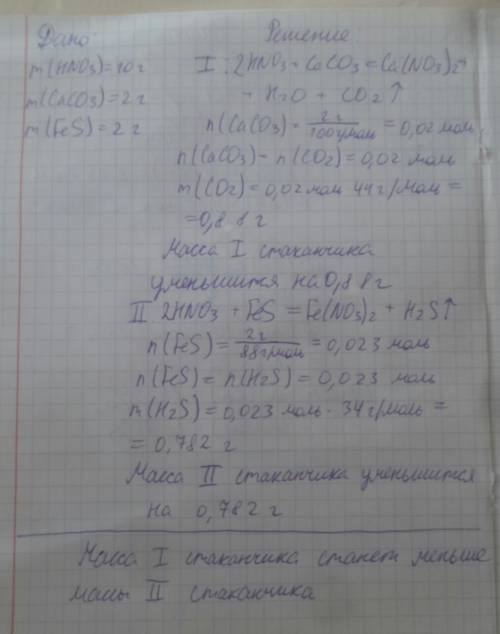 Дано:
Решение:
m(HNO3)=10 г
m(CaCO3)=2 г
m(FeS)=2 г
I : 2HNO3 + CaCO3 = Ca(NO3)2 +
+ H2O + CO2↑
n(CaCO3) = 2 г / 100 г/моль = 0,02 моль
n(CaCO3) = n(CO2) = 0,02 моль
m(CO2) = 0,02 моль · 44 г/моль =
=0,88 г
Масса I стаканчика
уменьшится на 0,88 г
II 2HNO3 + FeS = Fe(NO3)2 + H2S↑
n(FeS) = 2 г / 88 г/моль = 0,023 моль
n(FeS) = n(H2S) = 0,023 моль
m(H2S) = 0,023 моль · 34 г/моль =
= 0,782 г
Масса II стаканчика уменьшится
на 0,782 г
Масса I стаканчика станет меньше
массы II стаканчика